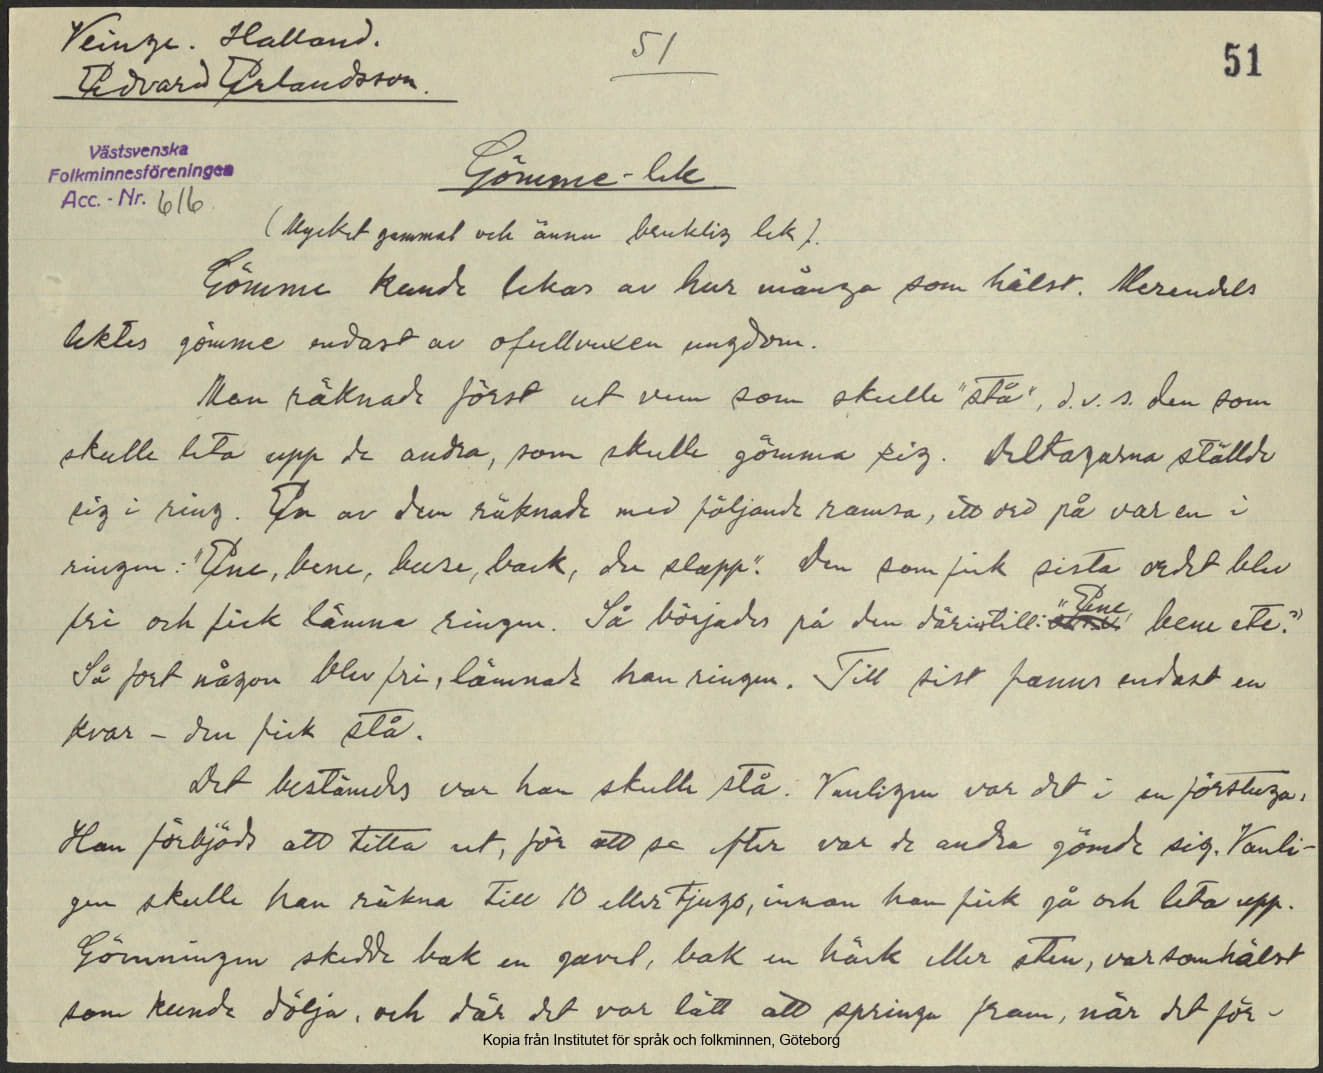 Veinge. Halland.
Edvard Erlandsson.
51
51
Västsvenska
Folkminnesföreningen
Acc. - Nr. 616
Gömme-lek
(Mycket gammal och ännu bruklig lek).
Gömme kunde lekas av hur många som hälst. Merendels
lektes gömme endast av ofullvuxen ungdom.
Man räknade först ut vem som skulle "stå", d.v.s. den som
skulle leta upp de andra, som skulle gömma sig. Deltagarna ställde
sig i ring. En av dem räknade med följande ramsa, ett ord på var en i
ringen: "Ene, bene, buse, back, du slapp". Den som fick sista ordet blev
fri och fick lämna ringen. Så börjades på den där intill: "Ene, bene etc."
Så fort någon blev fri, lämnade han ringen. Till sist fanns endast en
kvar – den fick stå.
Det bestämdes var han skulle stå. Vanligen var det i en förstuga.
Han förbjöds att titta ut, för att se efter var de andra gömde sig. Vanli-
gen skulle han räkna till 10 eller tjugo, innan han fick gå och leta upp.
Gömningen skedde bak en gavel, bak en häck eller sten, varsomhälst
som kunde dölja, och där det var lätt att springa fram, när det för-
Kopia från Institutet för språk och folkminnen, Göteborg